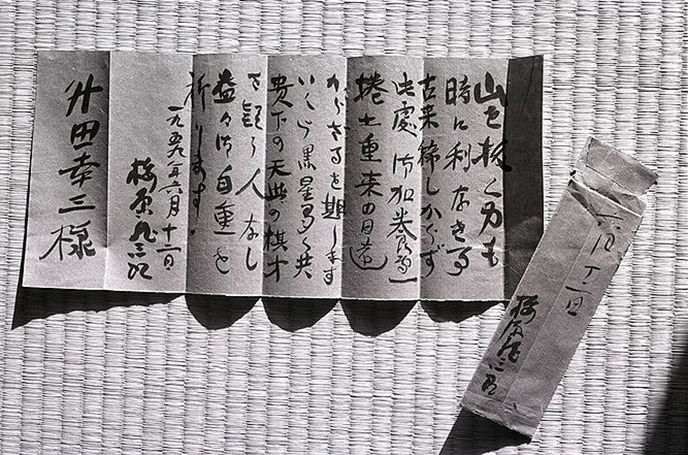 山を抜く力も
時に利なき
古来稀しからず
此處御加養
捲土重来の日遠
からざるを期します
いくら黒星多く共
貴下の天与の棋才
を疑う人なし
益々御自重を
祈ります
一九五九年六月十二日
梅原龍三郎
升田幸三様
六月十二日
梅原龍三郎